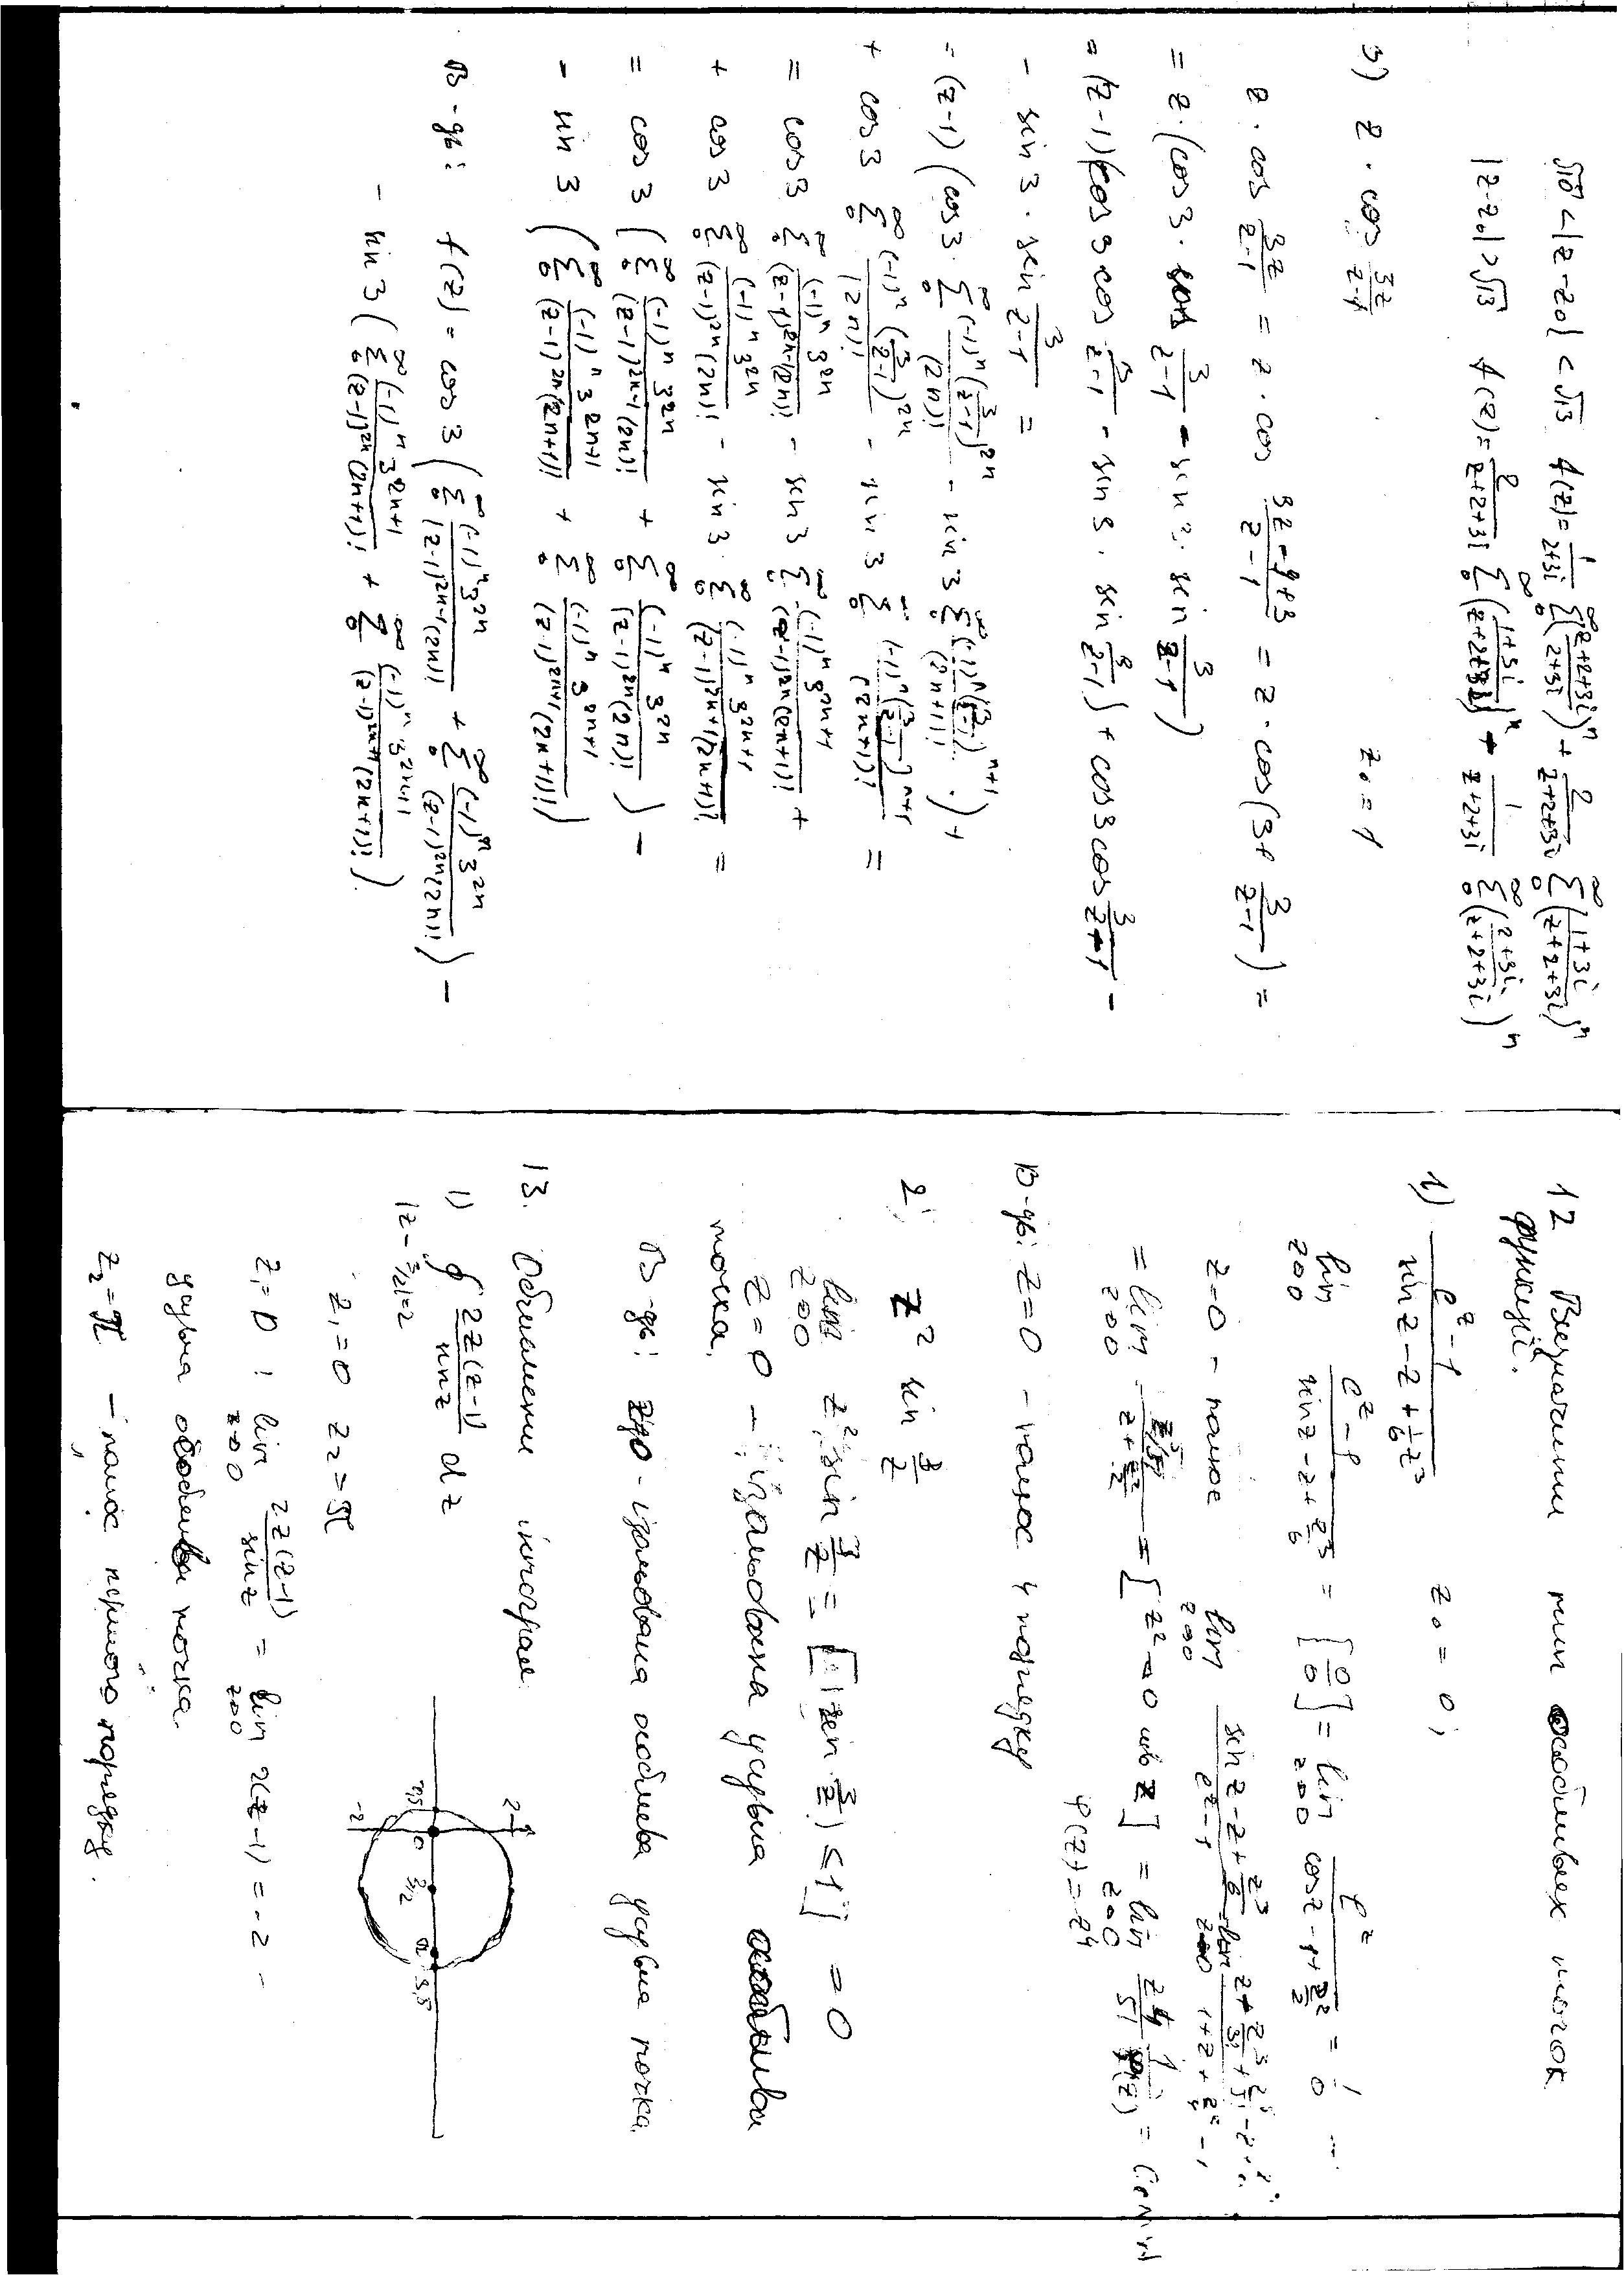 √10 < |z-z₀| < √13   f(z) = 1/(2+3i) Σ₀^∞ ((z+2+3i)/(2+3i))ⁿ + 2/(z+2+3i) Σ₀^∞ ((1+3i)/(z+2+3i))ⁿ
|z-z₀| > √13   f(z) = 2/(z+2+3i) Σ₀^∞ ((1+3i)/(z+2+3i))ⁿ + 1/(z+2+3i) Σ₀^∞ ((2+3i)/(z+2+3i))ⁿ
3) z · cos 3z/(z-1)   z₀ = 1
z · cos 3z/(z-1) = z · cos (3z-3+3)/(z-1) = z · cos(3+ 3/(z-1)) =
= z · (cos 3 · cos 3/(z-1) - sin 3 · sin 3/(z-1))
= (z-1)(cos 3 cos 3/(z-1) - sin 3 · sin 3/(z-1)) + cos 3 cos 3/(z-1) -
- sin 3 · sin 3/(z-1) =
= (z-1)(cos 3 · Σ₀^∞ (-1)ⁿ(3/(z-1))²ⁿ/(2n)! - sin 3 Σ₀^∞ (-1)ⁿ(3/(z-1))ⁿ⁺¹/(2n+1)!) +
+ cos 3 Σ₀^∞ (-1)ⁿ(3/(z-1))²ⁿ/(2n)! - sin 3 Σ₀^∞ (-1)ⁿ(3/(z-1))ⁿ⁺¹/(2n+1)! =
= cos 3 Σ₀^∞ (-1)ⁿ3²ⁿ/((z-1)²ⁿ⁻¹(2n)!) - sin 3 Σ₀^∞ (-1)ⁿ3²ⁿ⁺¹/((z-1)²ⁿ(2n+1)!) +
+ cos 3 Σ₀^∞ (-1)ⁿ3²ⁿ/((z-1)²ⁿ(2n)!) - sin 3 · Σ₀^∞ (-1)ⁿ3²ⁿ⁺¹/((z-1)²ⁿ⁺¹(2n+1)!) =
= cos 3 (Σ₀^∞ (-1)ⁿ3²ⁿ/((z-1)²ⁿ⁻¹(2n)!) + Σ₀^∞ (-1)ⁿ3²ⁿ/((z-1)²ⁿ(2n)!)) -
- sin 3 (Σ₀^∞ (-1)ⁿ3²ⁿ⁺¹/((z-1)²ⁿ(2n+1)!) + Σ₀^∞ (-1)ⁿ3²ⁿ⁺¹/((z-1)²ⁿ⁺¹(2n+1)!))
В-дь: f(z) = cos 3 (Σ₀^∞ (-1)ⁿ3²ⁿ/((z-1)²ⁿ⁻¹(2n)!) + Σ₀^∞ (-1)ⁿ3²ⁿ/((z-1)²ⁿ(2n)!)) -
- sin 3 (Σ₀^∞ (-1)ⁿ3²ⁿ⁺¹/((z-1)²ⁿ(2n+1)!) + Σ₀^∞ (-1)ⁿ3²ⁿ⁺¹/((z-1)²ⁿ⁺¹(2n+1)!))
12 Визначити тип особливих точок
функції.
1) (e^z - 1)/(sin z - z + 1/6 z³)   z₀ = 0;
lim z→0 (e^z - 1)/(sin z - z + z³/6) = [0/0] = lim z→0 e^z/(cos z - 1 + z²/2) = 1/0 ...
z=0 - полюс   lim z→0 (sin z - z + z³/6)/(e^z - 1)
= lim z→0 (z⁵/5!)/(z + z²/2) = [z² → 0 z] = lim z→0 z⁴/5! 1/φ(z) =
φ(z) = z⁴
В-дь: z=0 - полюс 4 порядку
2) z² sin 3/z
lim z→0 z² sin 3/z = [|sin 3/z| ≤ 1] = 0
z=0 - ізольована усувна особлива
точка.
В-дь: z=0 - ізольована особлива усувна точка.
13. Обчислити інтеграл
1) ∮ 2z(z-1)/sin z dz
|z-3/2|=2
z₁=0 z₂=π
2
-0,5 0 3/2 π 3,5
-2
z₁=0 : lim z→0 2z(z-1)/sin z = lim z→0 2(z-1) = -2 -
усувна особлива точка.
z₂=π - полюс першого порядку.